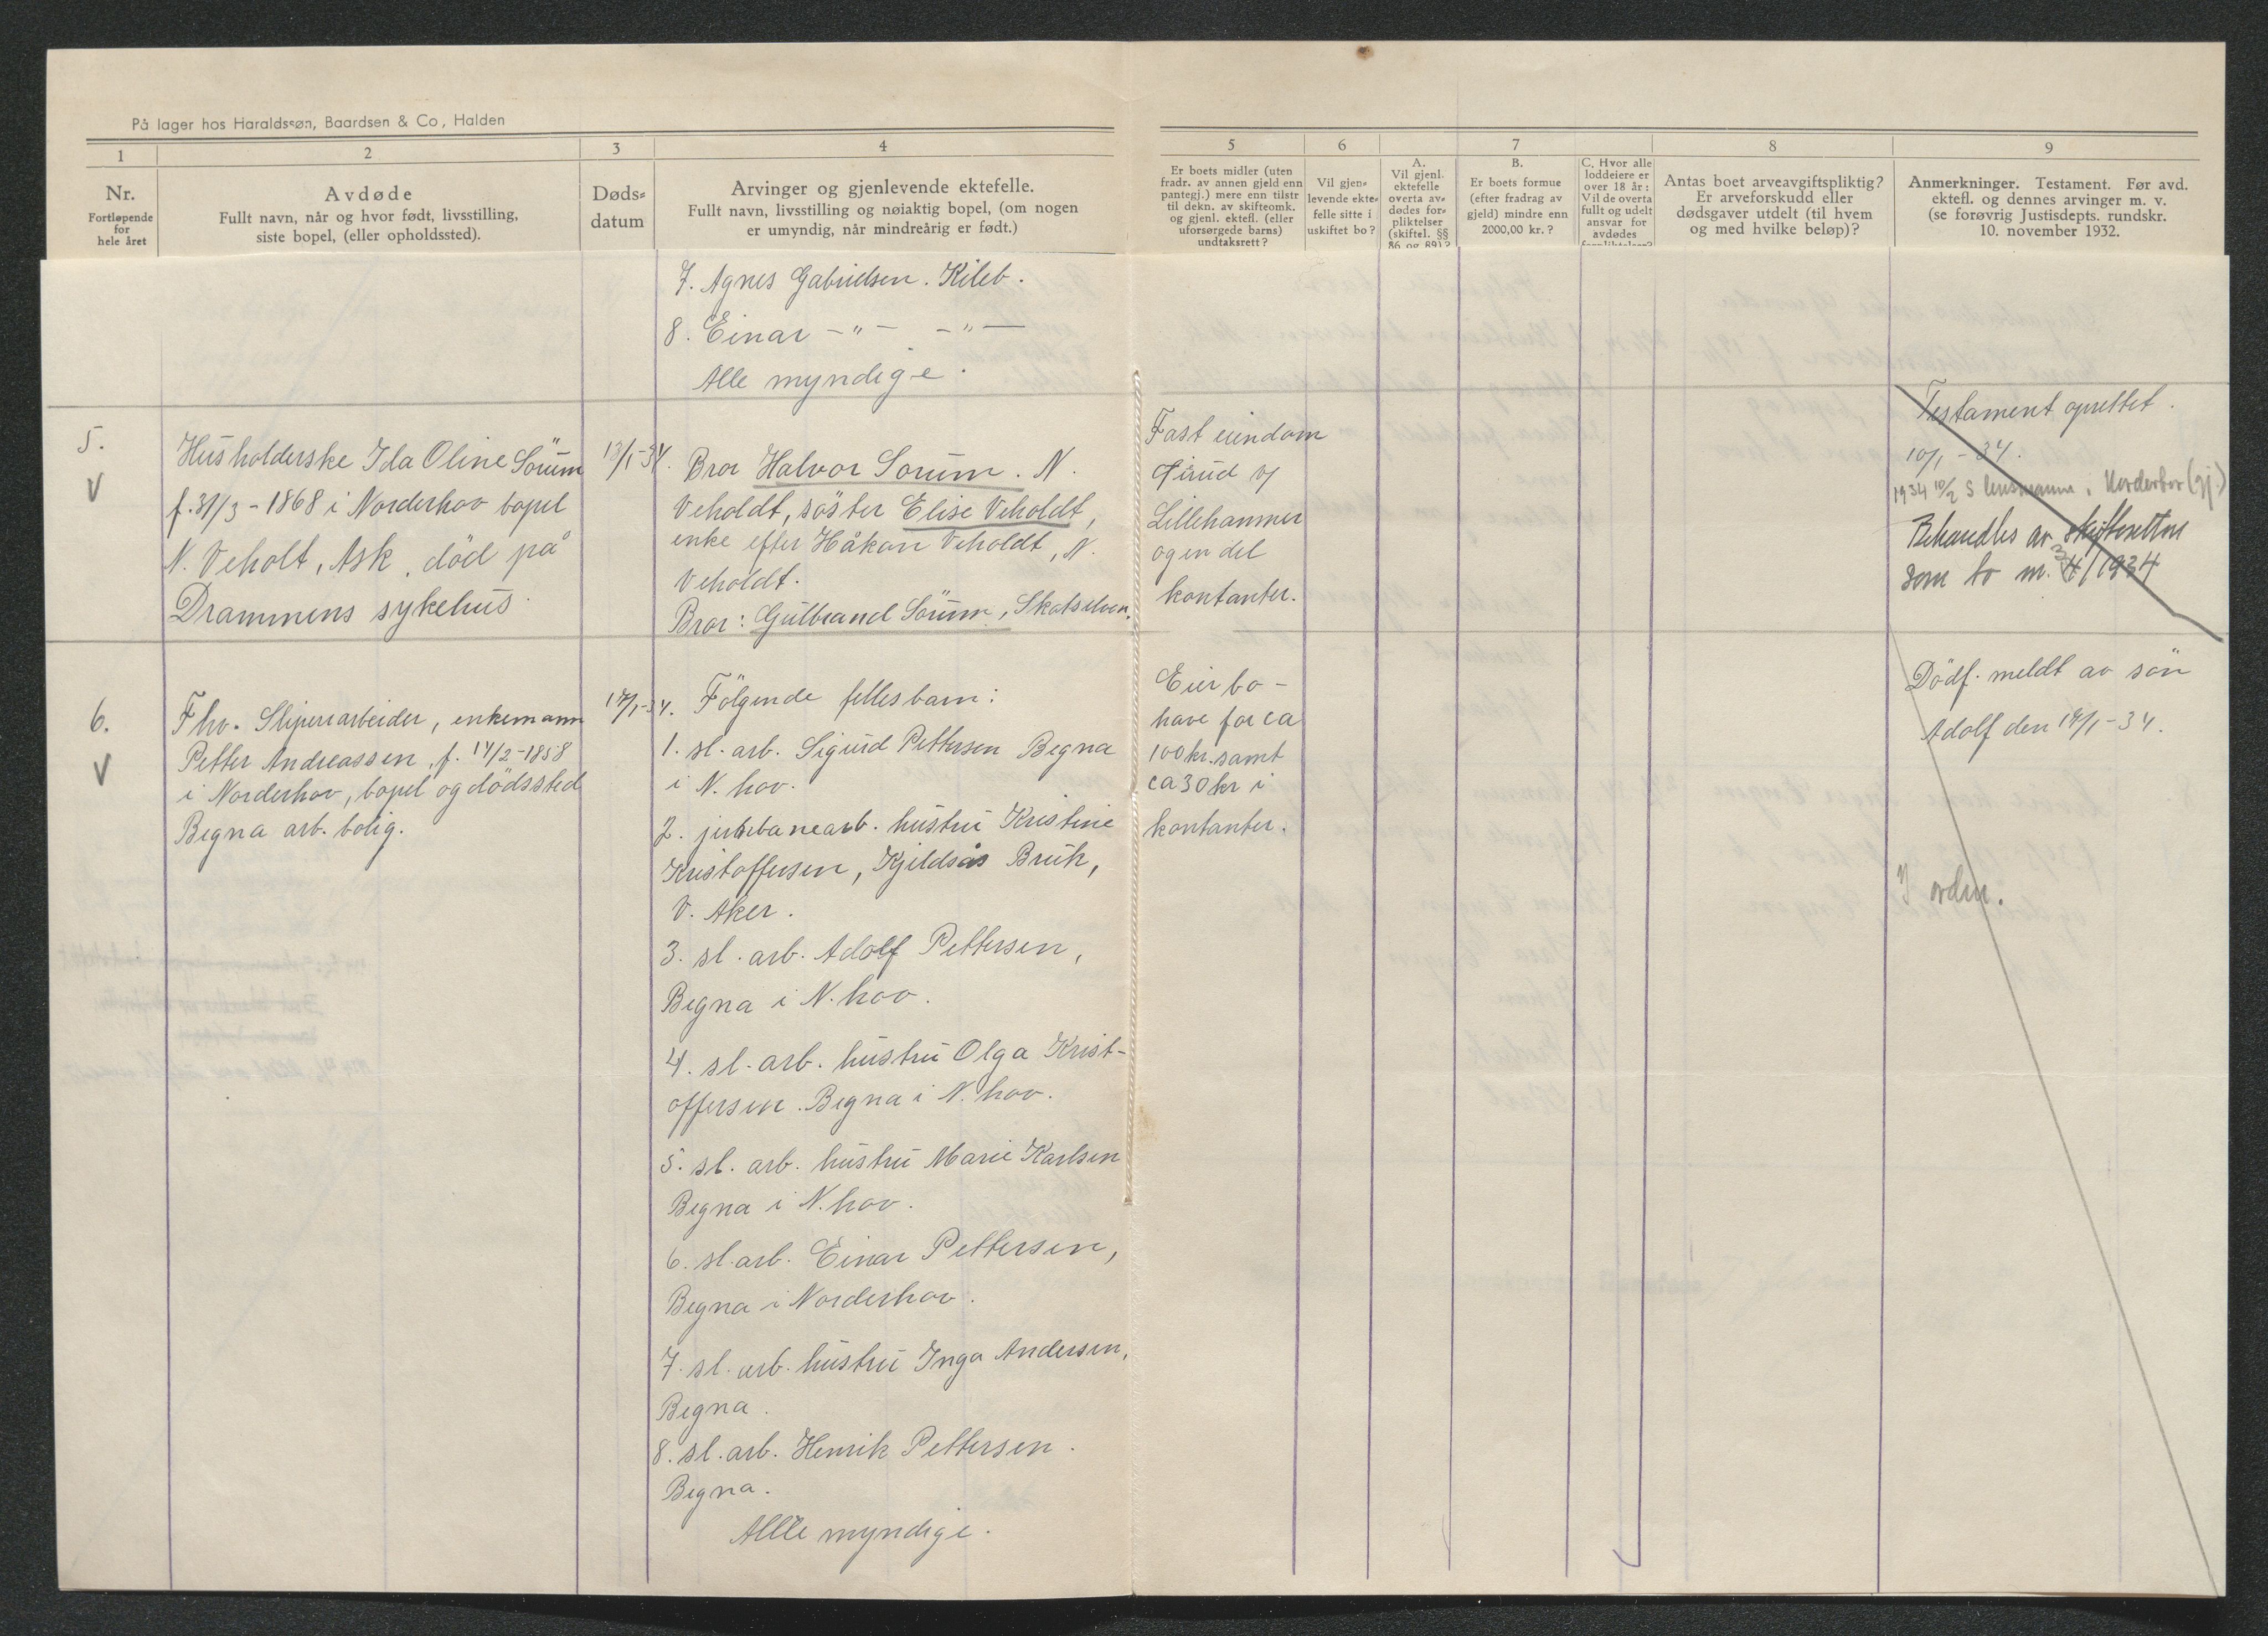 På lager hos Haraldssøn, Baardsen & Co, Halden
1
2
3
4
5
6
7
8
9
Nr.
Fortløpende
for
hele året
Avdøde
Fullt navn, når og hvor født, livsstilling,
siste bopel, (eller opholdssted).
Døds-
datum
Arvinger og gjenlevende ektefelle.
Fullt navn, livsstilling og nøiaktig bopel, (om nogen
er umyndig, når mindreårig er født.)
Er boets midler (uten
fradr. av annen gjeld enn
pantegj.) mere enn tilstr
til dekn. av skifteomk.
og gjenl. ektefl. (eller
uforsørgede barns)
undtaksrett?
Vil gjen-
levende ekte-
felle sitte i
uskiftet bo?
A.
Vil gjenl.
ektefelle
overta av-
dødes for-
pliktelser
(skiftel. §§
86 og 89)?
B.
Er boets formue
(efter fradrag av
gjeld) mindre enn
2000,00 kr.?
C. Hvor alle
loddeiere er
over 18 år:
Vil de overta
fullt og udelt
ansvar for
avdødes
forpliktelser?
Antas boet arveavgiftspliktig?
Er arveforskudd eller
dødsgaver utdelt (til hvem
og med hvilke beløp)?
Anmerkninger. Testament. Før avd.
ektefl. og dennes arvinger m. v.
(se forøvrig Justisdepts. rundskr.
10. november 1932.
7. Agnes Gabrielsen. Kileb.
8. Einar -"- -"-
Alle myndige.
5.
V
Husholderske Ida Oline Sörum
f. 31/3-1868 i Norderhov bopel
N. Veholt, Ask, död på
Drammens sykehus.
13/1-34.
Bror Halvor Sorum. N.
Veholdt, söster Elise Veholdt,
enke efter Håkon Veholdt, N.
Veholdt.
Bror: Gulbrand Sörum, Skotselven.
Fast eiendom
og
Lillehammer
og en del
kontanter.
Testament oprettet.
10/1-34.
1934 10/2 S lensmann i Norderhov (gj.)
Behandles av skifteretten
som bo nr. 3/1934
6.
V
Fhv. Sliperiarbeider, enkemann
Petter Andreassen, f. 14/2-1858
i Norderhov, bopel og dödssted
Begna arb. bolig.
17/1-34.
Fölgende fellesbarn:
1. sl. arb. Sigurd Pettersen Begna
i N. hov.
2. jernbanearb. hustru Kristine
Kristoffersen, Kjeldsås Bruk,
V. Aker.
3. sl. arb. Adolf Pettersen,
Begna i N. hov.
4. sl. arb. hustru Olga Krist-
offersen. Begna i N. hov.
5. sl. arb. hustru Marie Karlsen
Begna i N. hov.
6. sl. arb. Einar Pettersen,
Begna i Norderhov.
7. sl. arb. hustru Inga Andersen,
Begna.
8. sl. arb. Henrik Pettersen.
Begna.
Alle myndige.
Eier bo-
have for ca
100 kr. samt
ca 30 kr i
kontanter.
Dödf. meldt av sön
Adolf den 19/1-34.
I orden.